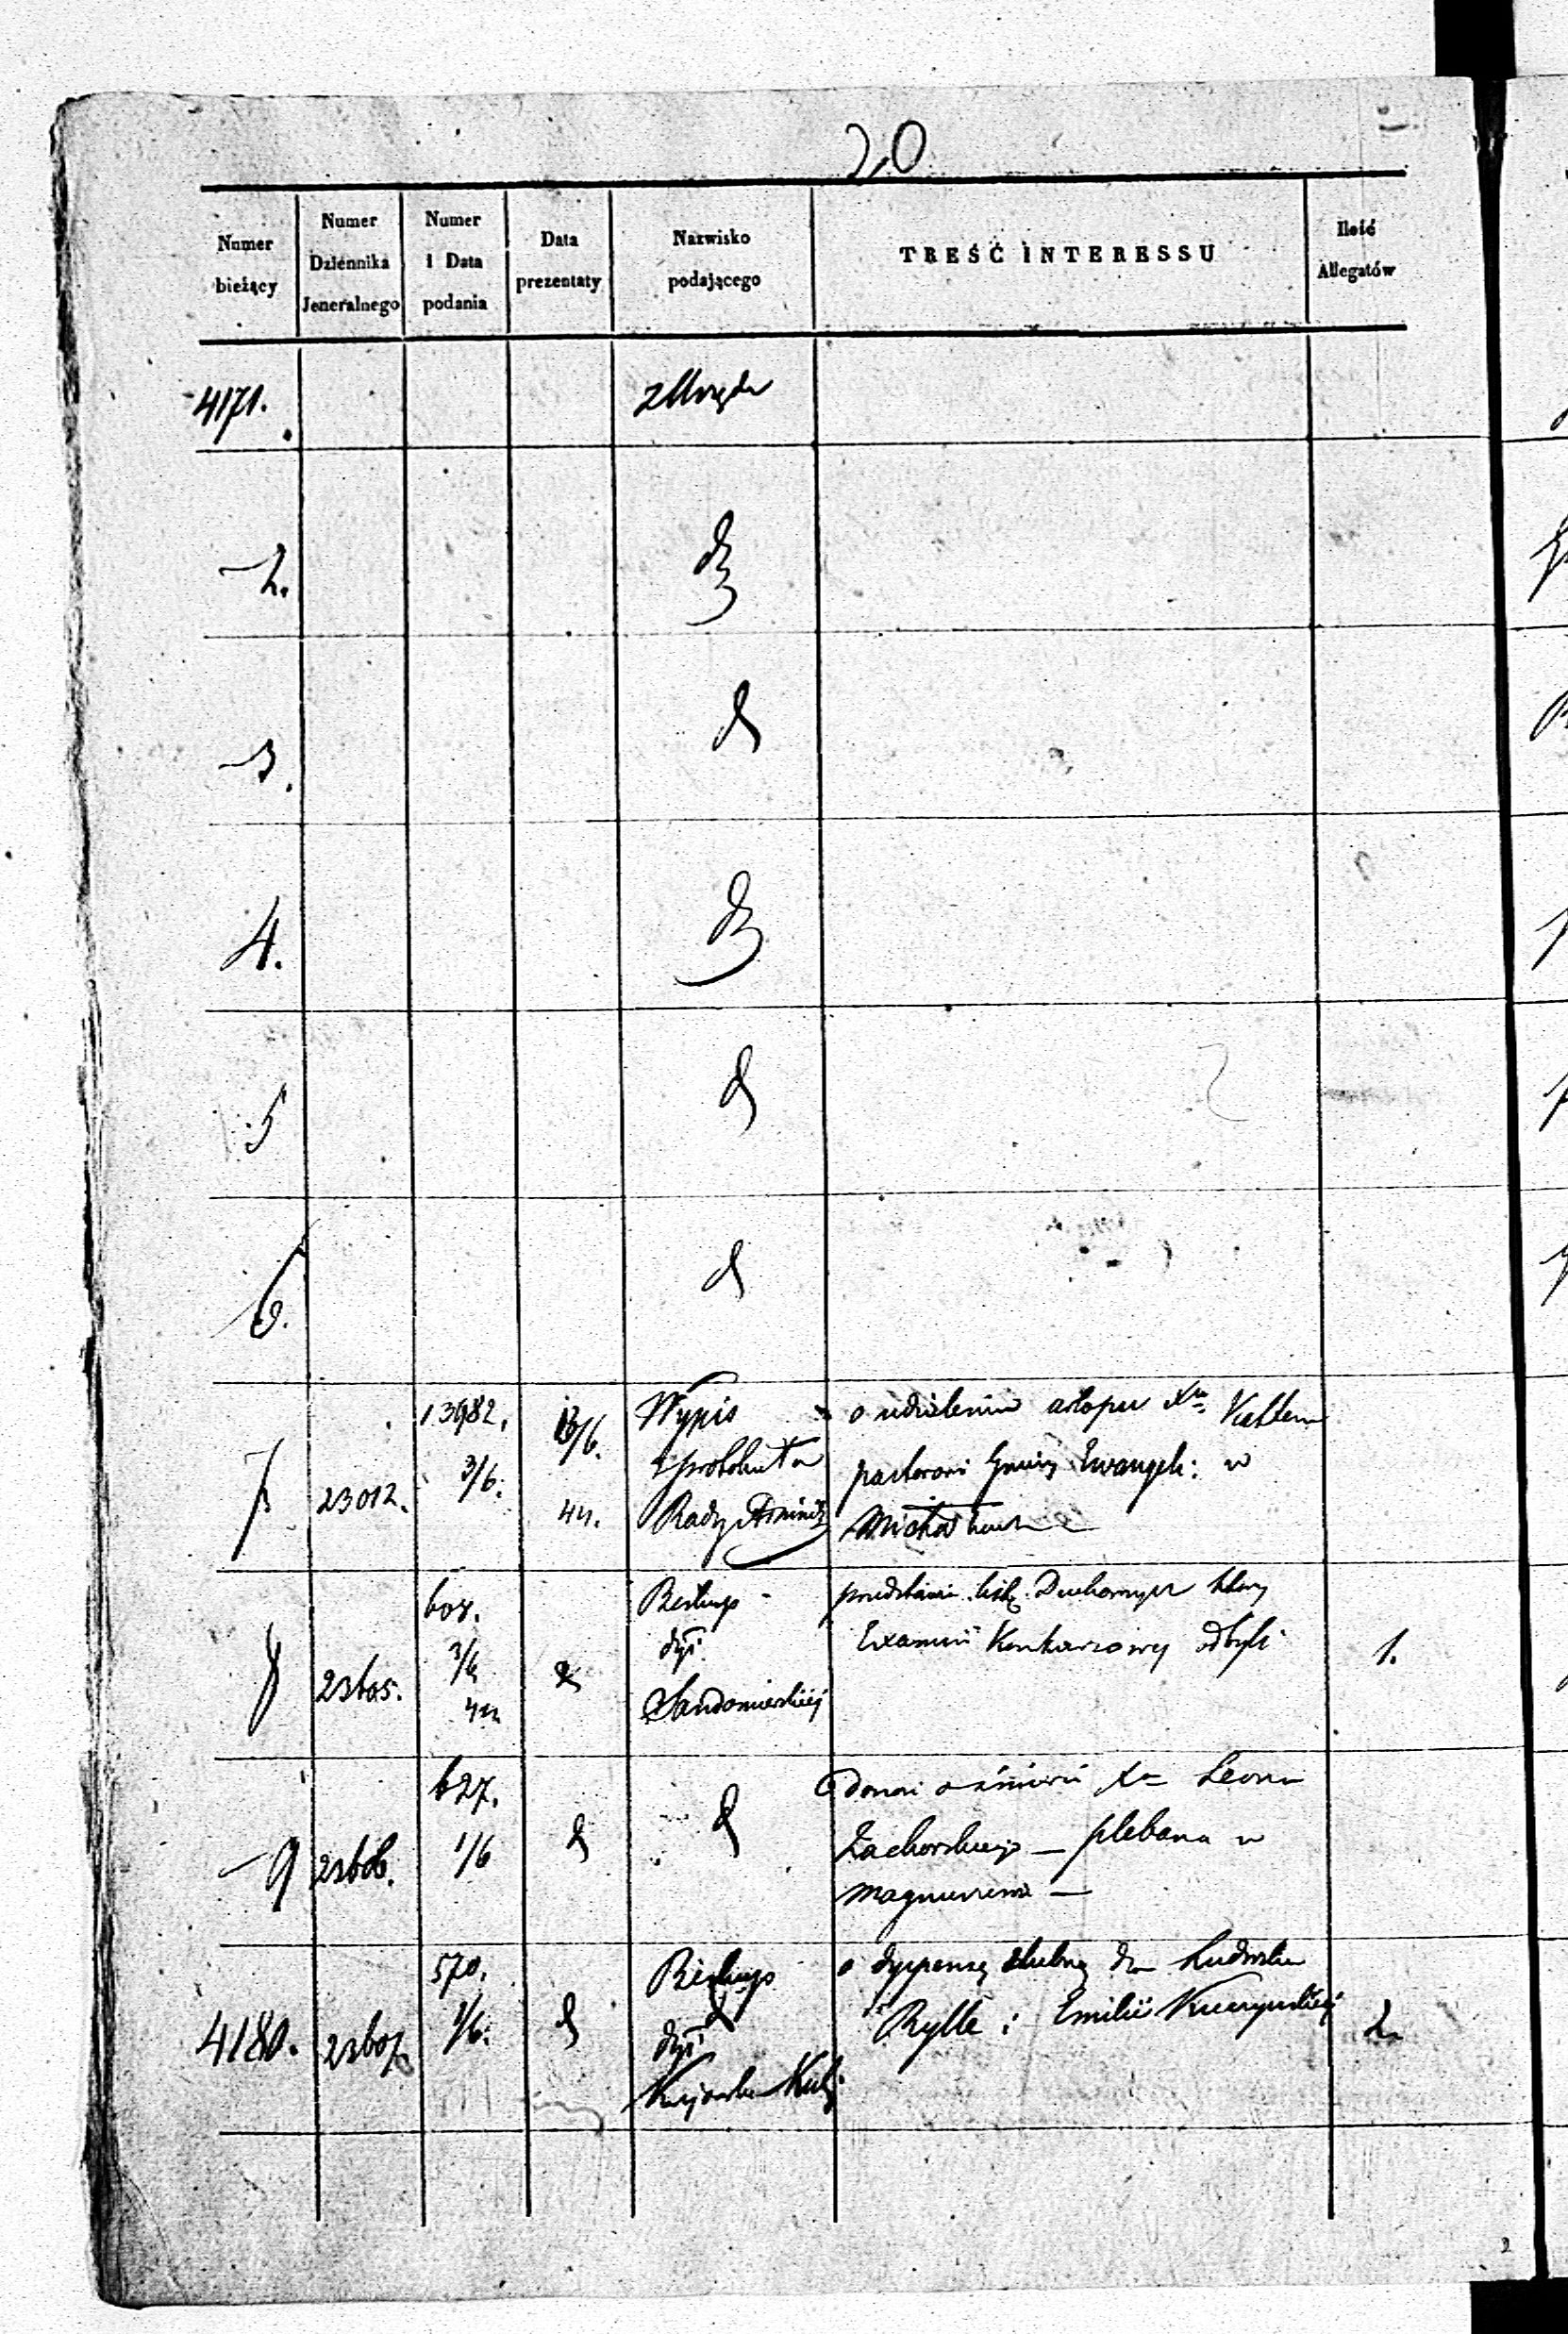 20
Numer bieżący
Numer Dziennika Jeneralnego
Numer i Data podania
Data prezentaty
Nazwisko podającego
TREŚĆ INTERESSU
Ilość Allegatów
4171. z Urzędu
2.
3.
4.
5
6.
7. 23012. 13982. 3/6. 13/6. 44.
Wypis
z protokułu
Rady Adminis
o udzieleniu urlopu Xu
pastorowi Gminy Ewangeli: w
8 23605. 607. 3/6 44
Biskup
dye:
Sandomierskiej
przedstawia listę Duchownych którzy
Examin Konkursowy odbyli
1.
9 23606. 627. 1/6
donosi o śmierci Xa Leona
Zachorskiego — plebana w
Magnuszewie —
4180. 23607 570. 1/6.
Biskup
dye:
Kujawsko Kali:
o dyspensę ślubną dla Ludwika
Rylle i Emilii
2.